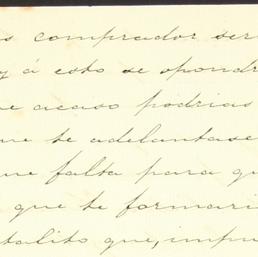 s comprador ser
y á esto se opondr
ue acaso podrias
ue te adelantase
ue falta para qu
que te formari
talito que, impu